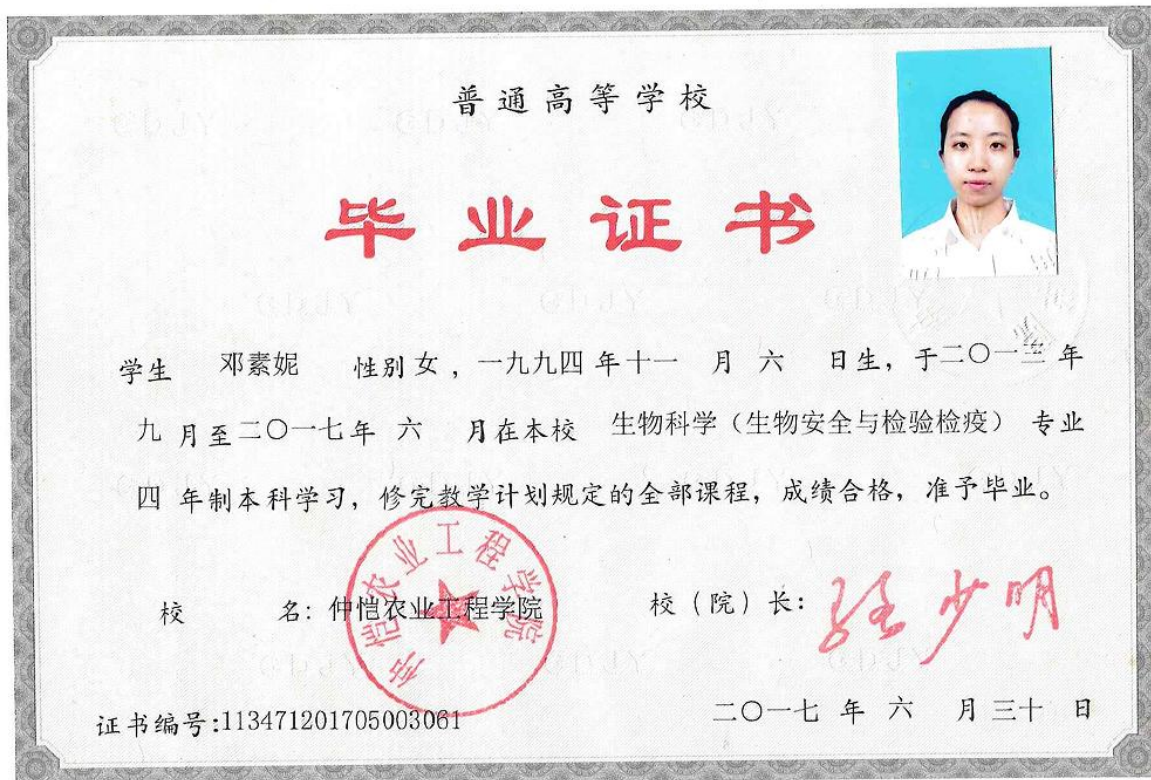 普通高等学校
毕业证书
学生 邓素妮 性别 女 ，一九九四 年 十一 月 六 日生，于 二〇一三 年
九 月至 二〇一七 年 六 月在本校 生物科学（生物安全与检验检疫） 专业
四 年制本科学习，修完教学计划规定的全部课程，成绩合格，准予毕业。
仲恺农业工程学院
校 名：仲恺农业工程学院 校（院）长：
证书编号:113471201705003061 二〇一七 年 六 月 三十 日